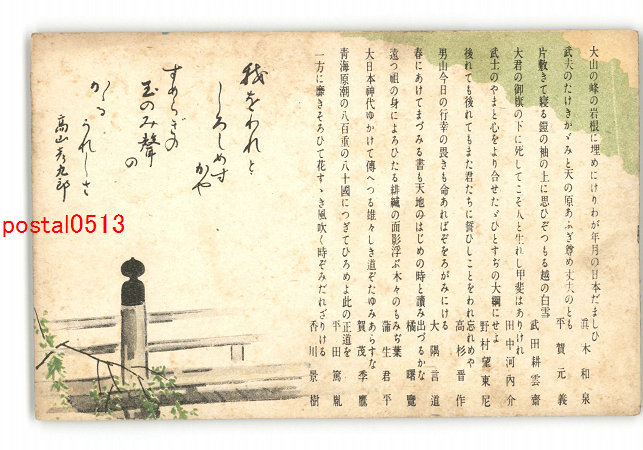 大山の峰の岩根に埋めにけりわが年月の日本だましひ 眞木和泉
武夫のたけきかゞみと天の原あふぎ尊め丈夫のとも 平賀元義
片敷きて寝る鎧の袖の上に思ひぞつもる越の白雪 武田耕雲齋
大君の御旗の下に死してこそ人と生れし甲斐はありけれ 田中河內介
武士のやまと心をより合せたゞひとすぢの大綱にせよ 野村望東尼
後れても後れてもまた君たちに誓ひしことをわれ忘れめや 高杉晋作
男山今日の行幸の畏きも命あればぞをろがみにける 大隈言道
春にあけてまづみる書も天地のはじめの時と讀み出づるかな 橘曙覽
遠つ祖の身によろひたる緋縅の面影浮ぶ木々のもみぢ葉 蒲生君平
大日本神代ゆかけて傳へつる雄々しき道ぞたゆみあらすな 賀茂季鷹
靑海原潮の八百重の八十國につぎてひろめよ此の正道を 平田篤胤
一方に靡きそろひて花すゝき風吹く時ぞみだれざりける 香川景樹
我をわれと
しろしめす
かや
すめらぎの
玉のみ聲の
かゝるうれしさ
高山彦九郎
postal0513